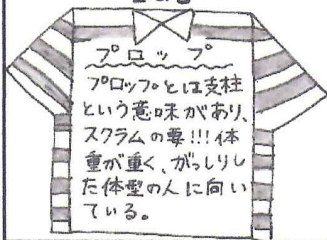 プロップ
プロップとは支柱
という意味があり、
スクラムの要!!!体
重が重く、がっしりし
た体型の人に向い
ている。